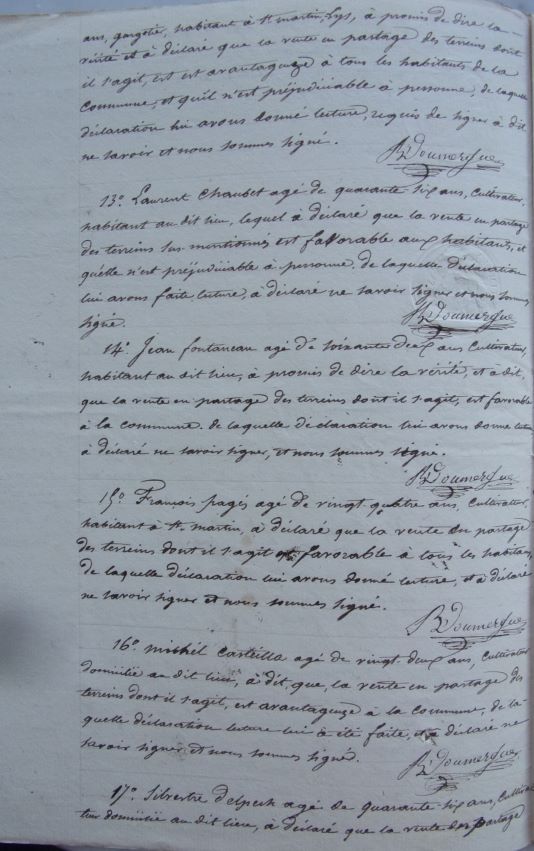 ans, gargotié, habitant à St martin Lys, à promis de dire la
vérité et à déclaré que la vente en partage des terreins dont
il s'agit, est est avantageuze à tous les habitants de la
Commune, et qu'il n'est préjudiciable à personne, de laquelle
déclaration lui avons donné lecture, requis de signer à dit
ne savoir et nous sommes signé.
R Doumergue
13.º Laurent Chaubet agé de quarante six ans, Cultivateur,
habitant au dit lieu, lequel à déclaré que la vente en partage
des terreins sus mentionnés est favorable aux habitants, et
quelle n'est préjudiciable à personne, de laquelle déclaration
lui avons faite lecture, à déclaré ne savoir signer et nous sommes
signé.
R Doumergue
14.º Jean fontaneau agé de soixante deux ans Cultivateur,
habitant au dit lieu, à promis de dire la vérité, et a dit,
que la vente en partage des terreins dont il s'agit, est favorable
à la commune. de laquelle déclaration lui avons donné lecture
à déclaré ne savoir signer, et nous sommes signé.
R Doumergue
15.º François pagés agé de vingt quatre ans, Cultivateur,
habitant à St. martin, à déclaré que la vente en partage
des terreins dont il s'agit est favorable à tous les habitans,
de laquelle déclaration lui avons donné lecture, et à déclaré
ne savoir signer et nous sommes signé.
R Doumergue
16.º michel Castilla agé de vingt deux ans, Cultivateur
domicilié au dit lieu, à dit, que, la vente en partage des
terreins dont il s'agit, est avantageuze à la commune, de la-
quelle déclaration lecture lui à été faite, et a déclaré ne
savoir signer et nous sommes signé.
R Doumergue
17.º Silvestre Delpech agé de quarante six ans, Cultiva-
teur domicilié au dit lieu, à déclaré que la vente en partage